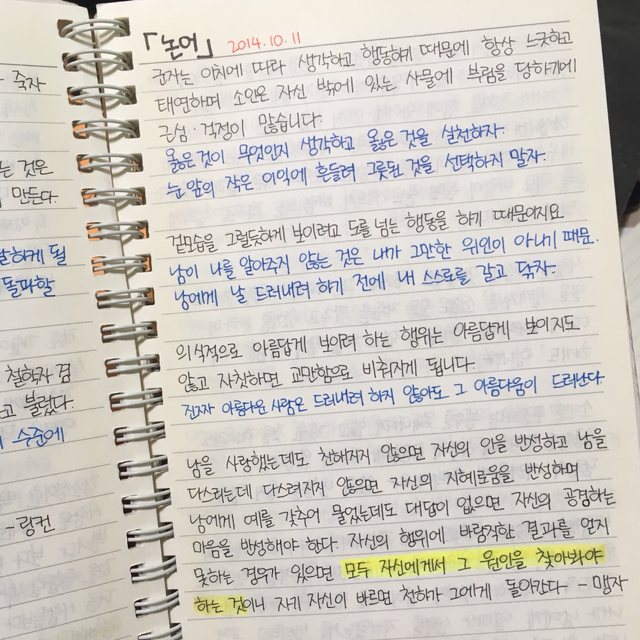 「논어」 2014.10.11
군자는 이치에 따라 생각하고 행동하기 때문에 항상 느긋하고
태연하며 소인은 자신 밖에 있는 사물에 부림을 당하기에
근심·걱정이 많습니다.
옳은 것이 무엇인지 생각하고 옳은 것을 실천하자.
눈 앞의 작은 이익에 흔들려 그릇된 것을 선택하지 말자.
겉모습을 그럴듯하게 보이려고 도를 넘는 행동을 하기 때문이지요
남이 나를 알아주지 않는 것은 내가 그만한 위인이 아니기 때문.
남에게 날 드러내려 하기 전에 내 스스로를 갈고 닦자.
의식적으로 아름답게 보이려 하는 행위는 아름답게 보이지도
않고 자칫하면 교만함으로 비춰지게 됩니다.
진짜 아름다운 사람은 드러내려 하지 않아도 그 아름다움이 드러난다
남을 사랑했는데도 친해지지 않으면 자신의 인을 반성하고 남을
다스리는데 다스려지지 않으면 자신의 지혜로움을 반성하며
남에게 예를 갖추어 물었는데도 대답이 없으면 자신의 공경하는
마음을 반성해야 한다. 자신의 행위에 바람직한 결과를 얻지
못하는 경우가 있으면 모두 자신에게서 그 원인을 찾아봐야
하는 것이니 자기 자신이 바르면 천하가 그에게 돌아간다 - 맹자
죽자
는 것은
만든다.
하게 될
돌파할
철학자 겸
고 불렀다.
수준에
- 링컨